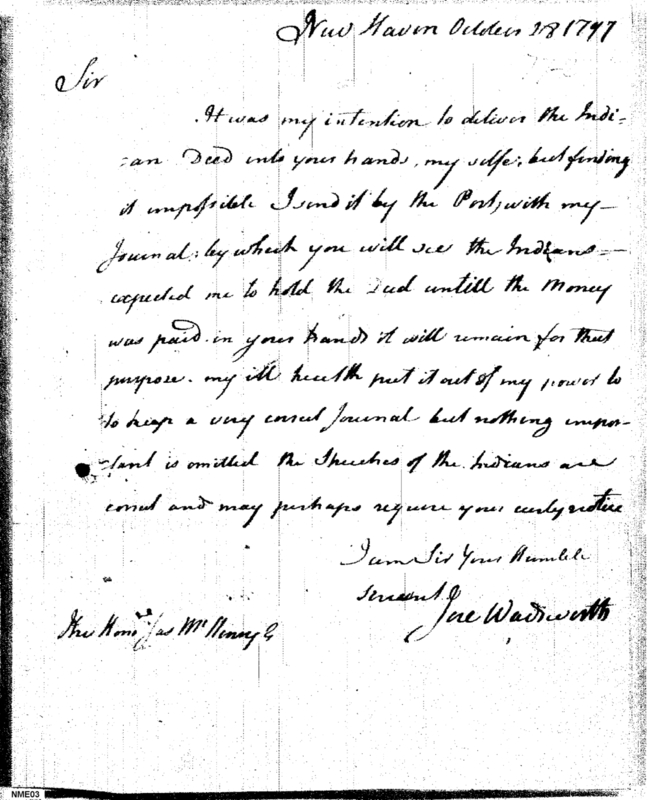 New Haven October 28 1797
Sir
It was my intention to deliver the Indi=
=an Deed into your hands, my selfe, but finding
it impossible I send it by the Post, with my
Journal; by which you will see the Indians
expected me to hold the Deed untill the Money
was paid. in your hands it will remain for that
purpose. my ill health put it out of my power to
to keep a very corect Journal but nothing impor-
=tant is omitted the Speeches of the Indians are
corect and may perhaps require your early notice
I am Sir Your Humble
Servant
Jere Wadsworth
The Hon Jas McHenry
NME03